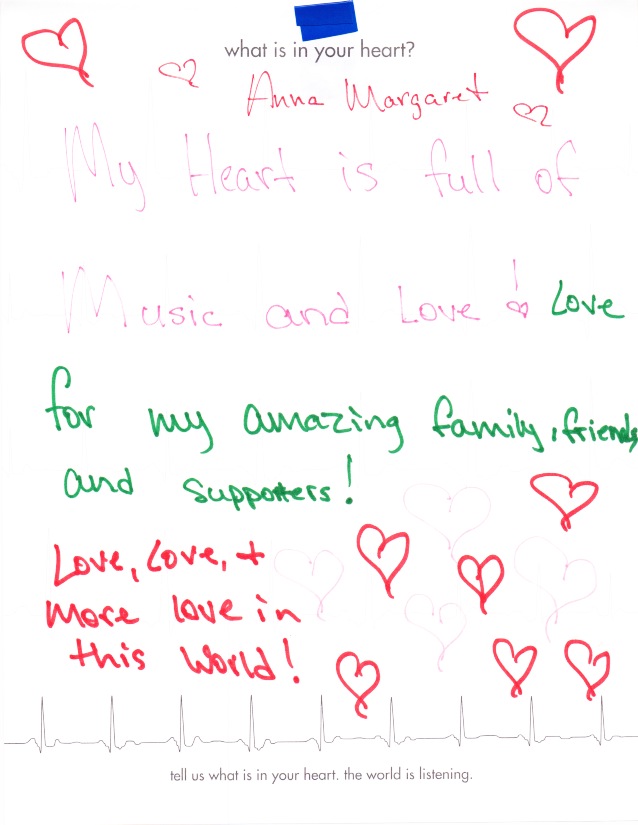 what is in your heart?
Anna Margaret
My Heart is full of
Music and Love! Love
for my amazing family, friends
and supporters!
Love, Love, +
more love in
this World!
tell us what is in your heart. the world is listening.